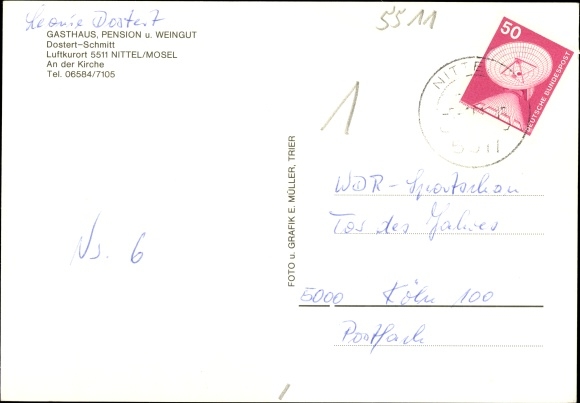 Leonie Dostert
GASTHAUS, PENSION u. WEINGUT
Dostert-Schmitt
Luftkurort 5511 NITTEL/MOSEL
An der Kirche
Tel. 06584/7105
5511
50
DEUTSCHE BUNDESPOST
NITTEL
5511
1
FOTO u. GRAFIK E. MÜLLER, TRIER
WDR-Sportschau
Tor des Jahres
5000 Köln 100
Postfach
Nr. 6